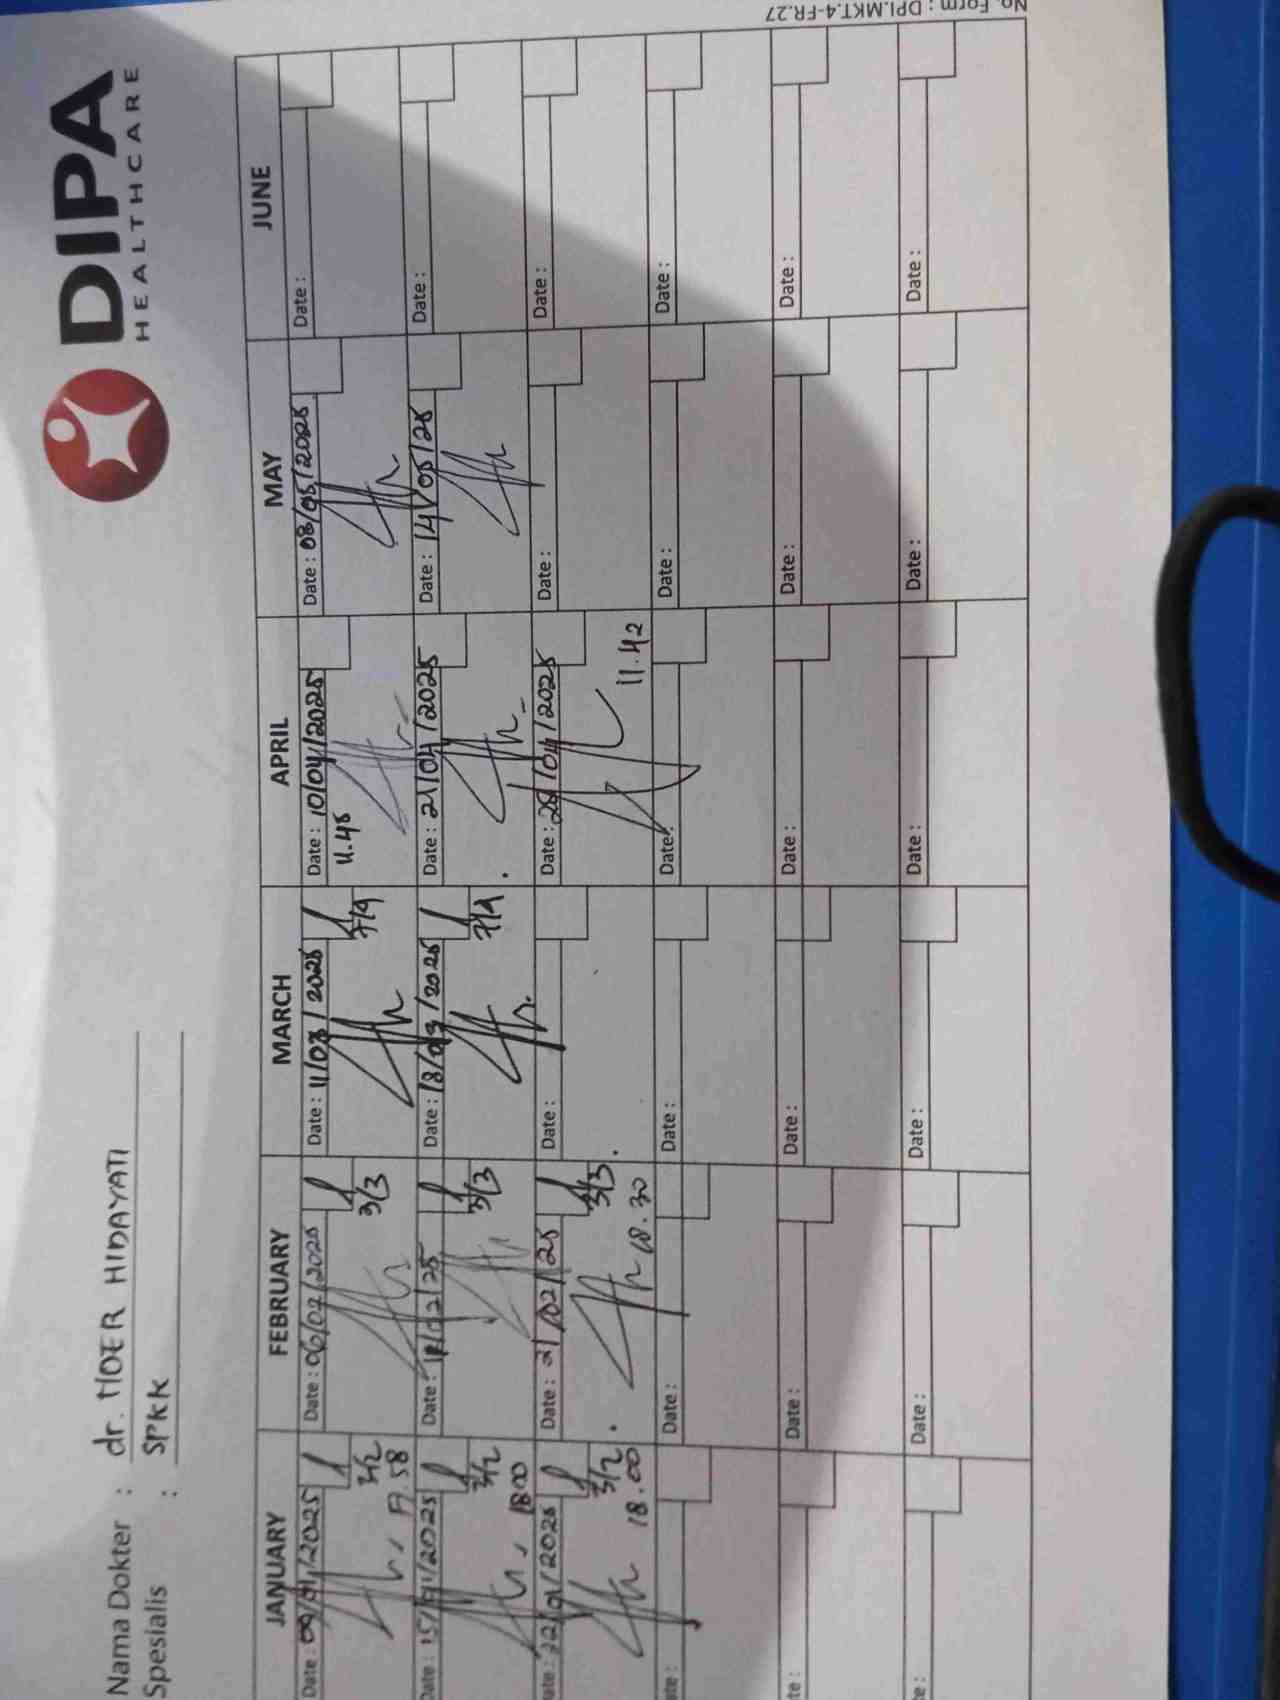 DIPA
HEALTHCARE
Nama Dokter : dr. NOER HIDAYATI
Spesialis : SPKK
JANUARY FEBRUARY MARCH APRIL MAY JUNE
Date : 09/01/2025 Date : 06/02/2025 Date : 11/03/2025 Date : 10/04/2025 Date : 08/05/2025 Date :
3/2 3/3 7/4 11.45
17.58
Date : 15/01/2025 Date : 12/02/25 Date : 18/03/2025 Date : 21/04/2025 Date : 14/05/25 Date :
3/2 3/3 7/4
1800
Date : 22/01/2025 Date : 21/02/25 Date : Date : 28/04/2025 Date : Date :
3/2 3/3
18.00 18.30 11.42
Date : Date : Date : Date : Date : Date :
Date : Date : Date : Date : Date : Date :
Date : Date : Date : Date : Date : Date :
No. Form : DPI.MKT.4-FR.27